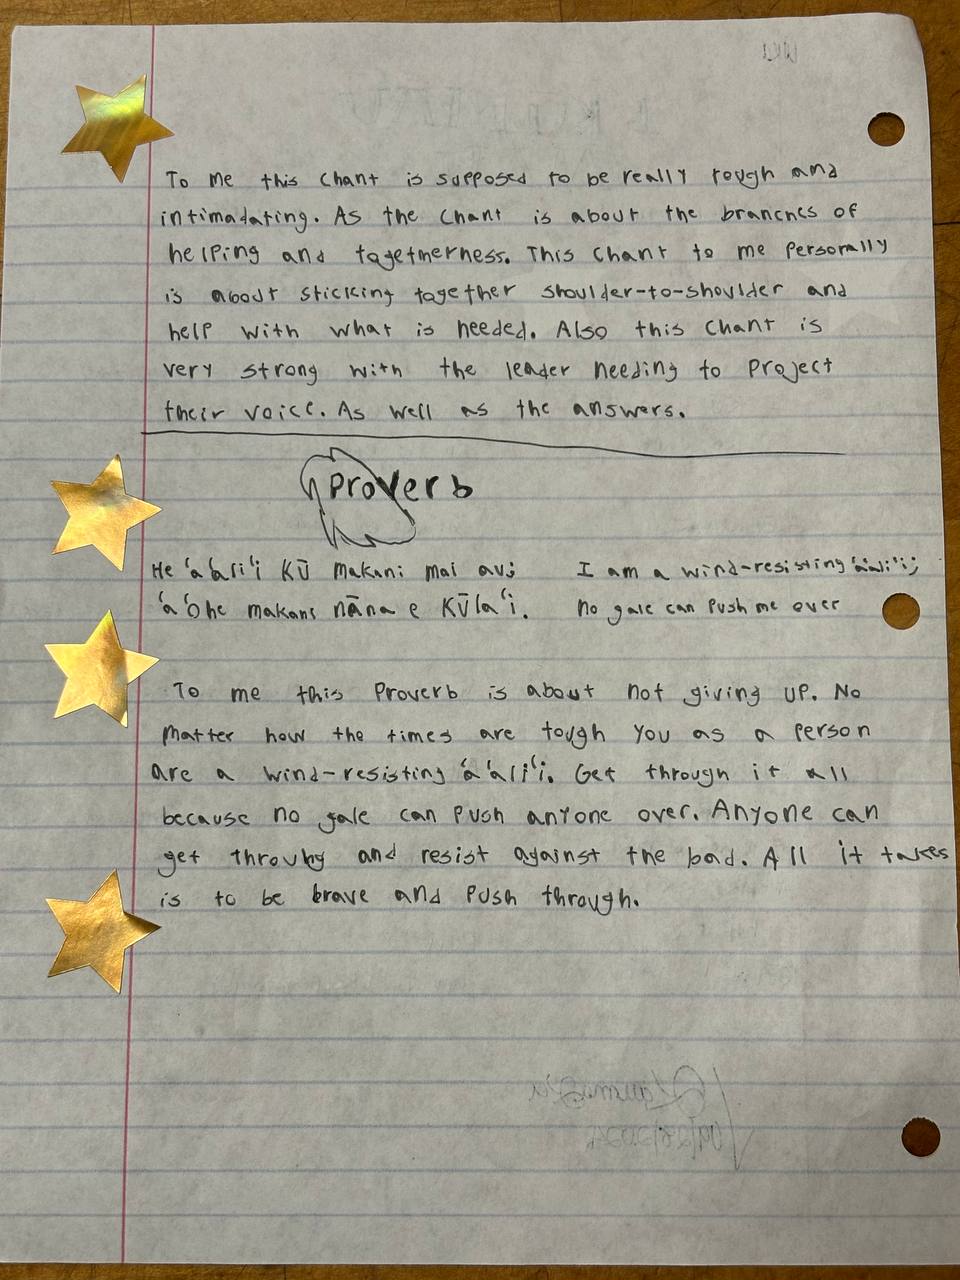 To me this chant is supposed to be really rough and
intimadating. As the chant is about the branches of
helping and togetherness. This chant to me personally
is about sticking together shoulder-to-shoulder and
help with what is needed. Also this chant is
very strong with the leader needing to project
their voice. As well as the answers.
Proverb
He ʻaʻaliʻi Kū makani mai au; I am a wind-resisting ʻaʻaliʻi;
ʻaʻohe makani nāna e Kūlaʻi. no gale can push me over
To me this proverb is about not giving up. No
matter how the times are tough you as a person
are a wind-resisting ʻaʻaliʻi. Get through it all
because no gale can push anyone over. Anyone can
get throuhg and resist against the bad. All it takes
is to be brave and push through.